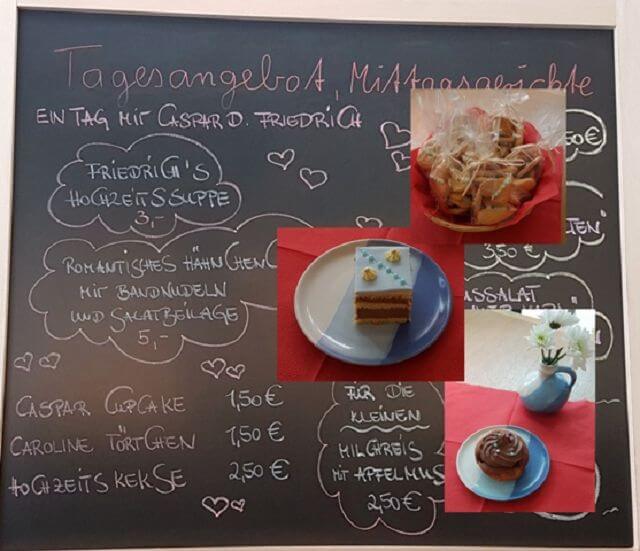 Tagesangebot, Mittagsgerichte
EIN TAG MIT CASPAR D. FRIEDRICH
FRIEDRICH'S
HOCHZEITSSUPPE
3,-
ROMANTISCHES HÄHNCHEN
MIT BANDNUDELN
UND SALATBEILAGE
5,-
CASPAR CUPCAKE 1,50 €
CAROLINE TÖRTCHEN 1,50 €
HOCHZEITSKEKSE 2,50 €
50 €
TEN"
3,50 €
USSALAT
FÜR DIE
KLEINEN
MILCHREIS
MIT APFELMUS
2,50 €